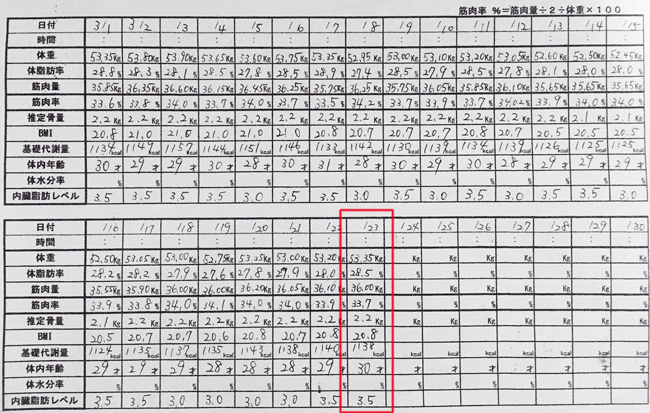 筋肉率 %＝筋肉量÷2÷体重×100
日付 3/1 3/2 /3 /4 /5 /6 /7 /8 /9 /10 /11 /12 /13 /14 /15
時間 : : : : : : : : : : : : : : :
体重 53.35Kg 53.80Kg 53.90Kg 53.65Kg 53.60Kg 53.75Kg 53.35Kg 52.95Kg 53.00Kg 53.10Kg 53.20Kg 53.05Kg 52.60Kg 52.50Kg 52.45Kg
体脂肪率 28.8% 28.3% 28.1% 28.5% 27.8% 28.5% 28.9% 27.4% 28.5% 27.9% 28.5% 27.8% 28.1% 28.0% 28.0%
筋肉量 35.85Kg 36.35Kg 36.60Kg 36.15Kg 36.45Kg 36.25Kg 35.75Kg 36.25Kg 35.75Kg 36.05Kg 35.85Kg 36.10Kg 35.65Kg 35.65Kg 35.65Kg
筋肉率 33.6% 33.8% 34.0% 33.7% 34.0% 33.7% 33.5% 34.2% 33.7% 33.9% 33.7% 34.02% 33.9% 34.0% 34.0%
推定骨量 2.2Kg 2.2Kg 2.2Kg 2.2Kg 2.2Kg 2.2Kg 2.2Kg 2.2Kg 2.2Kg 2.2Kg 2.2Kg 2.2Kg 2.2Kg 2.1Kg 2.1Kg
BMI 20.8 21.0 21.0 21.0 21.0 21.0 20.8 20.7 20.7 20.7 20.8 20.7 20.5 20.5 20.5
基礎代謝量 1134kcal 1149kcal 1157kcal 1144kcal 1151kcal 1146kcal 1133kcal 1142kcal 1130kcal 1139kcal 1134kcal 1139kcal 1126kcal 1125kcal 1125kcal
体内年齢 30才 29才 29才 30才 28才 30才 31才 28才 30才 29才 30才 28才 29才 29才 29才
体水分率 % % % % % % % % % % % % % % %
内臓脂肪レベル 3.5 3.5 3.5 3.5 3.0 3.5 3.5 3.0 3.5 3.0 3.5 3.0 3.5 3.5 3.0
日付 /16 /17 /18 /19 /20 /21 /22 /23 /24 /25 /26 /27 /28 /29 /30
時間 : : : : : : : : : : : : : : :
体重 52.50Kg 53.05Kg 53.00Kg 52.75Kg 53.25Kg 53.00Kg 53.20Kg 53.35Kg Kg Kg Kg Kg Kg Kg Kg
体脂肪率 28.2% 28.2% 27.9% 27.6% 27.8% 27.9% 28.0% 28.5% % % % % % % %
筋肉量 35.55Kg 35.90Kg 36.00Kg 36.00Kg 36.20Kg 36.05Kg 36.10Kg 36.00Kg Kg Kg Kg Kg Kg Kg Kg
筋肉率 33.9% 33.8% 34.0% 34.1% 34.0% 34.0% 33.9% 33.7% % % % % % % %
推定骨量 2.1Kg 2.2Kg 2.2Kg 2.2Kg 2.2Kg 2.2Kg 2.2Kg 2.2Kg Kg Kg Kg Kg Kg Kg Kg
BMI 20.5 20.7 20.7 20.6 20.8 20.7 20.8 20.8
基礎代謝量 1124kcal 1135kcal 1137kcal 1135kcal 1143kcal 1138kcal 1140kcal 1138kcal kcal kcal kcal kcal kcal kcal kcal
体内年齢 29才 29才 29才 28才 28才 28才 29才 30才 才 才 才 才 才 才 才
体水分率 % % % % % % % % % % % % % % %
内臓脂肪レベル 3.5 3.5 3.0 3.0 3.0 3.0 3.5 3.5